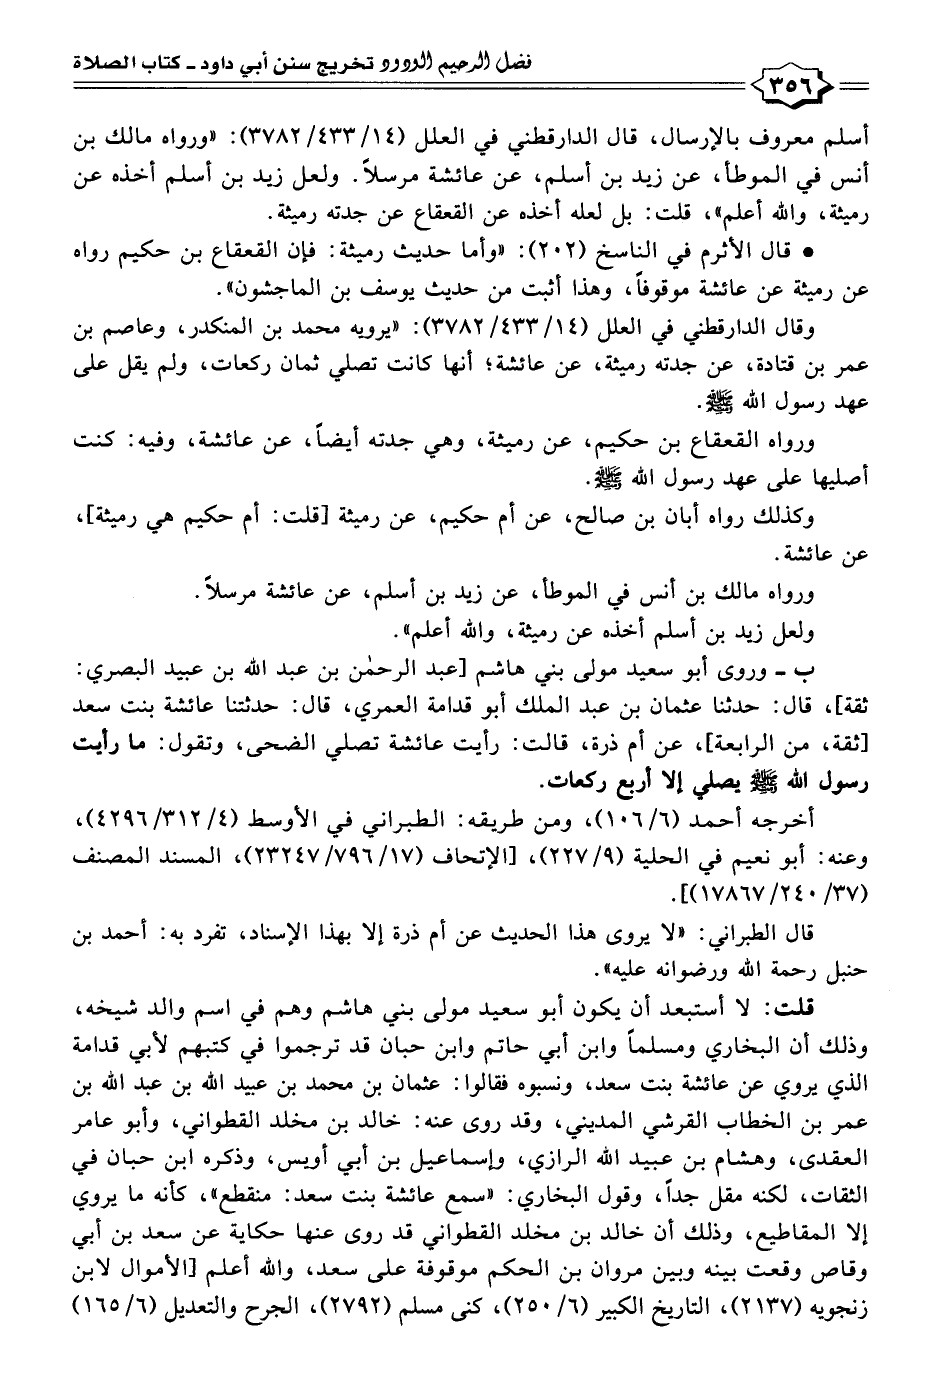 فضل الرحيم الودود تخريج سنن أبي داود - كتاب الصلاة
٣٥٦
أسلم معروف بالإرسال، قال الدارقطني في العلل (١٤/ ٤٣٣/ ٣٧٨٢): «ورواه مالك بن
أنس في الموطأ، عن زيد بن أسلم، عن عائشة مرسلاً. ولعل زيد بن أسلم أخذه عن
رميثة، والله أعلم»، قلت: بل لعله أخذه عن القعقاع عن جدته رميثة.
• قال الأثرم في الناسخ (٢٠٢): «وأما حديث رميثة: فإن القعقاع بن حكيم رواه
عن رميثة عن عائشة موقوفاً، وهذا أثبت من حديث يوسف بن الماجشون».
وقال الدارقطني في العلل (١٤/ ٤٣٣/ ٣٧٨٢): «يرويه محمد بن المنكدر، وعاصم بن
عمر بن قتادة، عن جدته رميثة، عن عائشة؛ أنها كانت تصلي ثمان ركعات، ولم يقل على
عهد رسول الله ﷺ.
ورواه القعقاع بن حكيم، عن رميثة، وهي جدته أيضاً، عن عائشة، وفيه: كنت
أصليها على عهد رسول الله ﷺ.
وكذلك رواه أبان بن صالح، عن أم حكيم، عن رميثة [قلت: أم حكيم هي رميثة]،
عن عائشة.
ورواه مالك بن أنس في الموطأ، عن زيد بن أسلم، عن عائشة مرسلاً.
ولعل زيد بن أسلم أخذه عن رميثة، والله أعلم».
ب - وروى أبو سعيد مولى بني هاشم [عبد الرحمٰن بن عبد الله بن عبيد البصري:
ثقة]، قال: حدثنا عثمان بن عبد الملك أبو قدامة العمري، قال: حدثتنا عائشة بنت سعد
[ثقة، من الرابعة]، عن أم ذرة، قالت: رأيت عائشة تصلي الضحى، وتقول: ما رأيت
رسول الله ﷺ يصلي إلا أربع ركعات.
أخرجه أحمد (٦/ ١٠٦)، ومن طريقه: الطبراني في الأوسط (٤/ ٣١٢/ ٤٢٩٦)،
وعنه: أبو نعيم في الحلية (٩/ ٢٢٧)، [الإتحاف (١٧/ ٧٩٦/ ٢٣٢٤٧)، المسند المصنف
(٣٧/ ٢٤٠/ ١٧٨٦٧)].
قال الطبراني: «لا يروى هذا الحديث عن أم ذرة إلا بهذا الإسناد، تفرد به: أحمد بن
حنبل رحمة الله ورضوانه عليه».
قلت: لا أستبعد أن يكون أبو سعيد مولى بني هاشم وهم في اسم والد شيخه،
وذلك أن البخاري ومسلماً وابن أبي حاتم وابن حبان قد ترجموا في كتبهم لأبي قدامة
الذي يروي عن عائشة بنت سعد، ونسبوه فقالوا: عثمان بن محمد بن عبيد الله بن عبد الله بن
عمر بن الخطاب القرشي المديني، وقد روى عنه: خالد بن مخلد القطواني، وأبو عامر
العقدي، وهشام بن عبيد الله الرازي، وإسماعيل بن أبي أويس، وذكره ابن حبان في
الثقات، لكنه مقل جداً، وقول البخاري: «سمع عائشة بنت سعد: منقطع»، كأنه ما يروي
إلا المقاطيع، وذلك أن خالد بن مخلد القطواني قد روى عنها حكاية عن سعد بن أبي
وقاص وقعت بينه وبين مروان بن الحكم موقوفة على سعد، والله أعلم [الأموال لابن
زنجويه (٢١٣٧)، التاريخ الكبير (٦/ ٢٥٠)، كنى مسلم (٢٧٩٢)، الجرح والتعديل (٦/ ١٦٥)